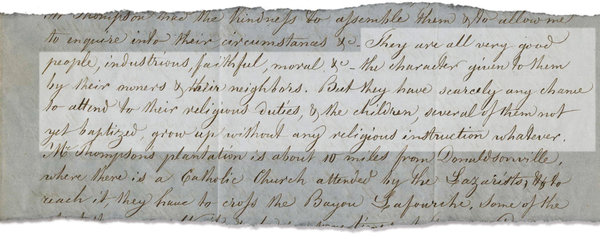 Mr Thompson had the kindness to assemble them & to allow me
to enquire into their circumstances &c. They are all very good
people, industrious, faithful, moral &c - the character given to them
by their owners & their neighbors. But they have scarcely any chance
to attend to their religious duties, & the children, several of them not
yet baptized, grow up without any religious instruction whatever.
Mr Thompsons plantation is about 10 miles from Donaldsonville,
where there is a Catholic Church attended by the Lazarists, & to
reach it, they have to cross the Bayou Lafourche, some of the